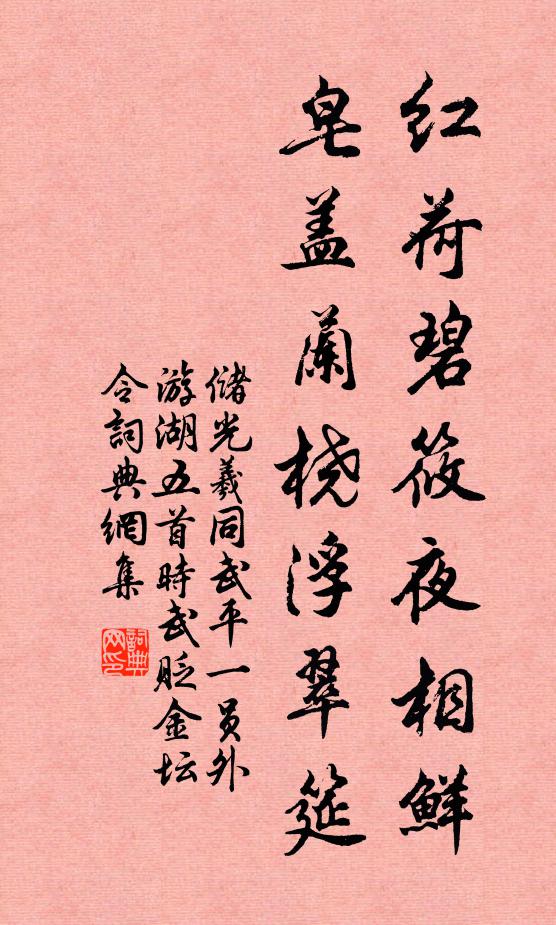 红荷碧筱夜相鮮
皂盖蘭桡浮翠筵
储光羲同武平一员外
游湖五首時武贬金坛
令詞典網集
詞典网印